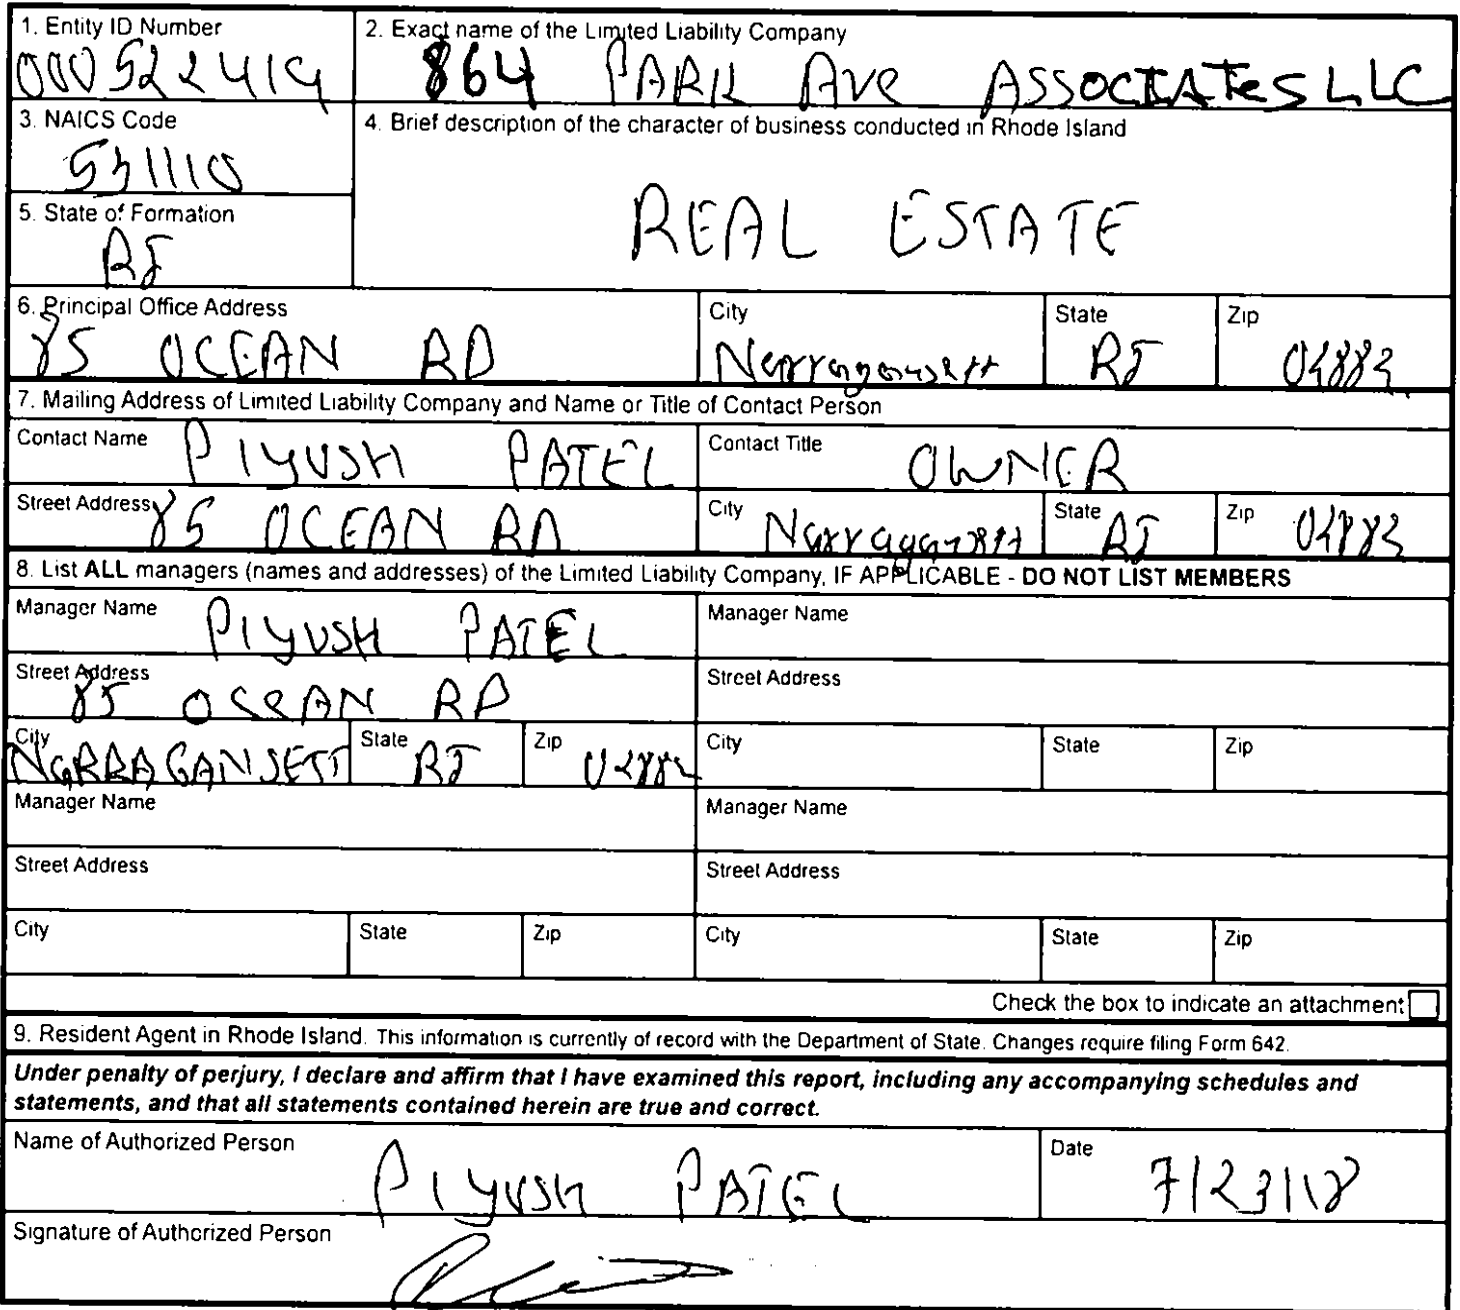 1. Entity ID Number
000522419
2. Exact name of the Limited Liability Company
864 PARK Ave ASSOCIATES LLC
3. NAICS Code
531110
4. Brief description of the character of business conducted in Rhode Island
REAL ESTATE
5. State of Formation
RI
6. Principal Office Address
85 OCEAN RD
City
Narragansett
State
RI
Zip
02882
7. Mailing Address of Limited Liability Company and Name or Title of Contact Person
Contact Name PIYUSH PATEL
Contact Title OWNER
Street Address 85 OCEAN RD
City Narragansett
State RI
Zip 02882
8. List ALL managers (names and addresses) of the Limited Liability Company, IF APPLICABLE - DO NOT LIST MEMBERS
Manager Name PIYUSH PATEL
Manager Name
Street Address
85 OCEAN RD
Street Address
City
NARRAGANSETT
State RI
Zip 02882
City
State
Zip
Manager Name
Manager Name
Street Address
Street Address
City
State
Zip
City
State
Zip
Check the box to indicate an attachment
9. Resident Agent in Rhode Island. This information is currently of record with the Department of State. Changes require filing Form 642.
Under penalty of perjury, I declare and affirm that I have examined this report, including any accompanying schedules and
statements, and that all statements contained herein are true and correct.
Name of Authorized Person
PIYUSH PATEL
Date
7/23/18
Signature of Authorized Person